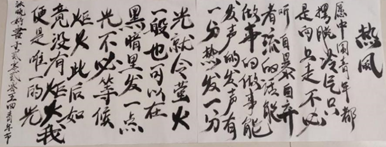 热风
愿中国青年都
摆脱冷气只
是向上走不必
听自暴自弃
者流的话能
做事的做事能
发声的发声有
一分热发一分
光就令萤火
一般也可以在
黑暗里发一点
光不必等候
炬火此后如
竟没有炬火我
便是唯一的光